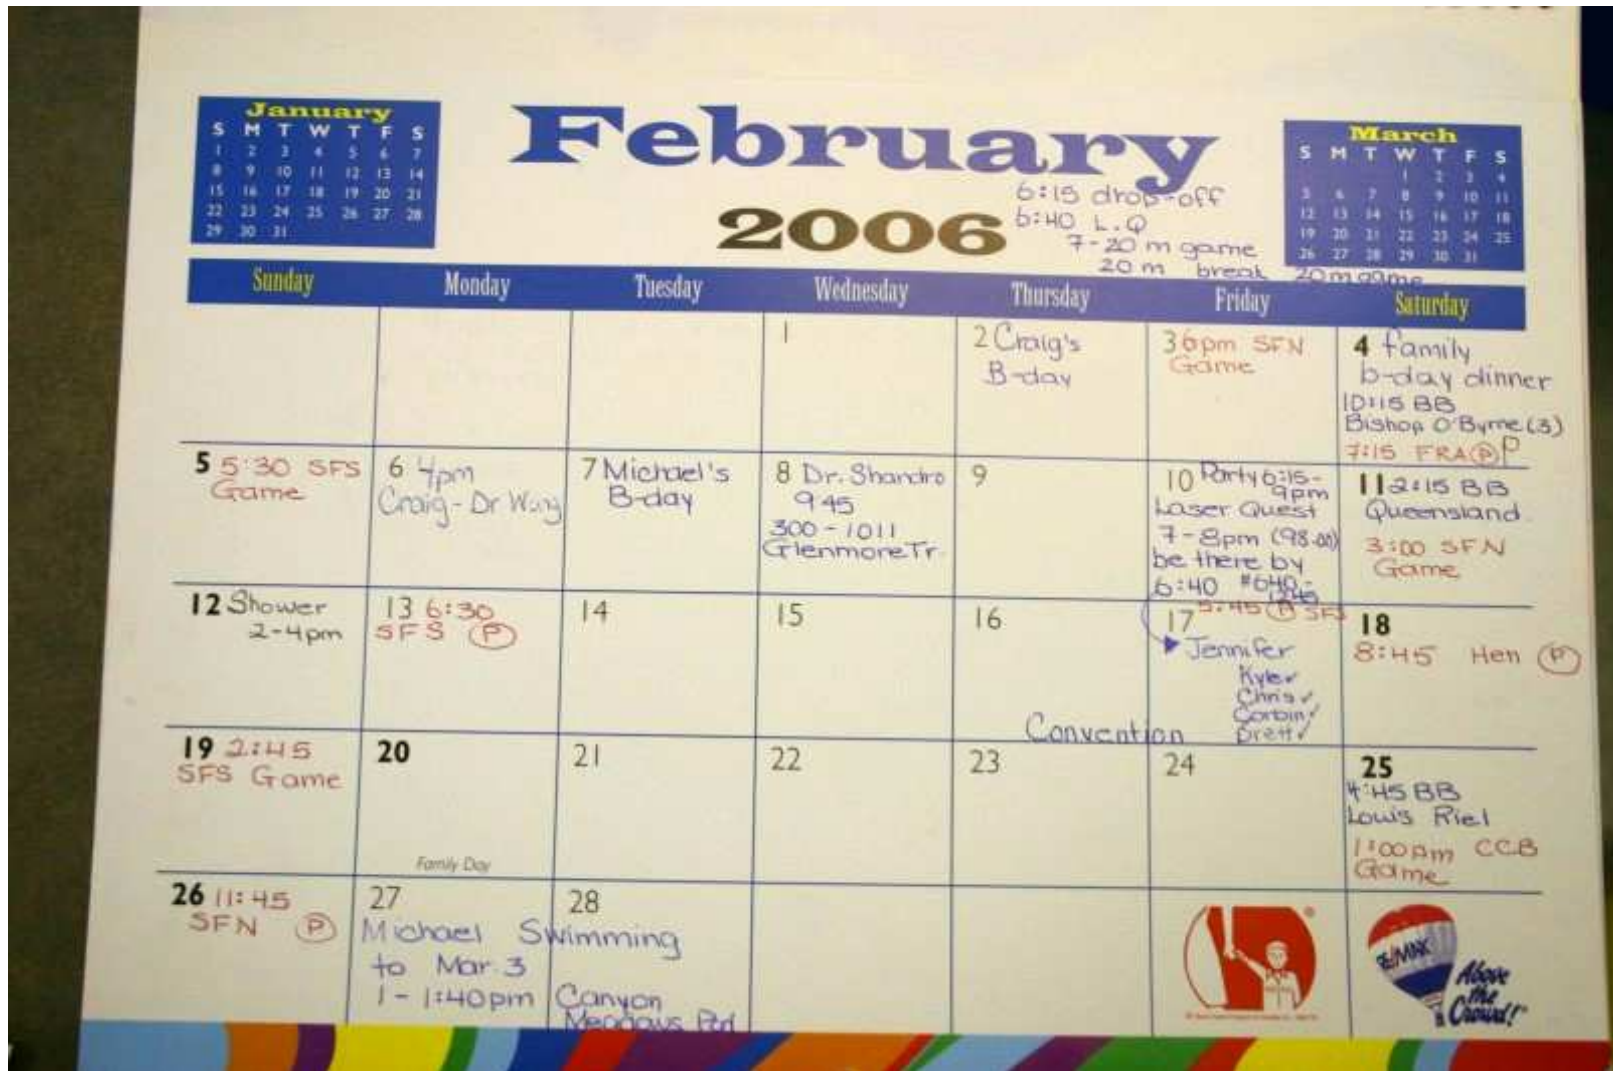 January
S M T W T F S
1 2 3 4 5 6 7
8 9 10 11 12 13 14
15 16 17 18 19 20 21
22 23 24 25 26 27 28
29 30 31
February
2006
6:15 drop-off
6:40 L.Q
7-20 m game
20 m break 20 m game
March
S M T W T F S
1 2 3 4
5 6 7 8 9 10 11
12 13 14 15 16 17 18
19 20 21 22 23 24 25
26 27 28 29 30 31
Sunday Monday Tuesday Wednesday Thursday Friday Saturday
1
2 Craig's
B-day
3 6pm SFN
Game
4 family
b-day dinner
10:15 BB
Bishop O'Byrne (3)
7:15 FRA P P
5 5:30 SFS
Game
6 4pm
Craig - Dr Wong
7 Michael's
B-day
8 Dr. Shandro
9 45
300 - 1011
Glenmore Tr.
9
10 Party 6:15-
9pm
Laser Quest
7-8pm (98.00)
be there by
6:40 #640-
11 2:15 BB
Queensland
3:00 SFN
Game
12 Shower
2-4pm
13 6:30
SFS P
14
15
16
17 5:45 P SFS
Jennifer
Kyle ✓
Chris ✓
Corbin ✓
Brett ✓
Convention
18
8:45 Hen P
19 2:45
SFS Game
20
Family Day
21
22
23
24
25
4:45 BB
Louis Riel
1:00pm CCB
Game
26 11:45
SFN P
27
Michael Swimming
to Mar. 3
1 - 1:40pm
28
Canyon
Meadows Pool
RE/MAX
Above
the
Crowd!